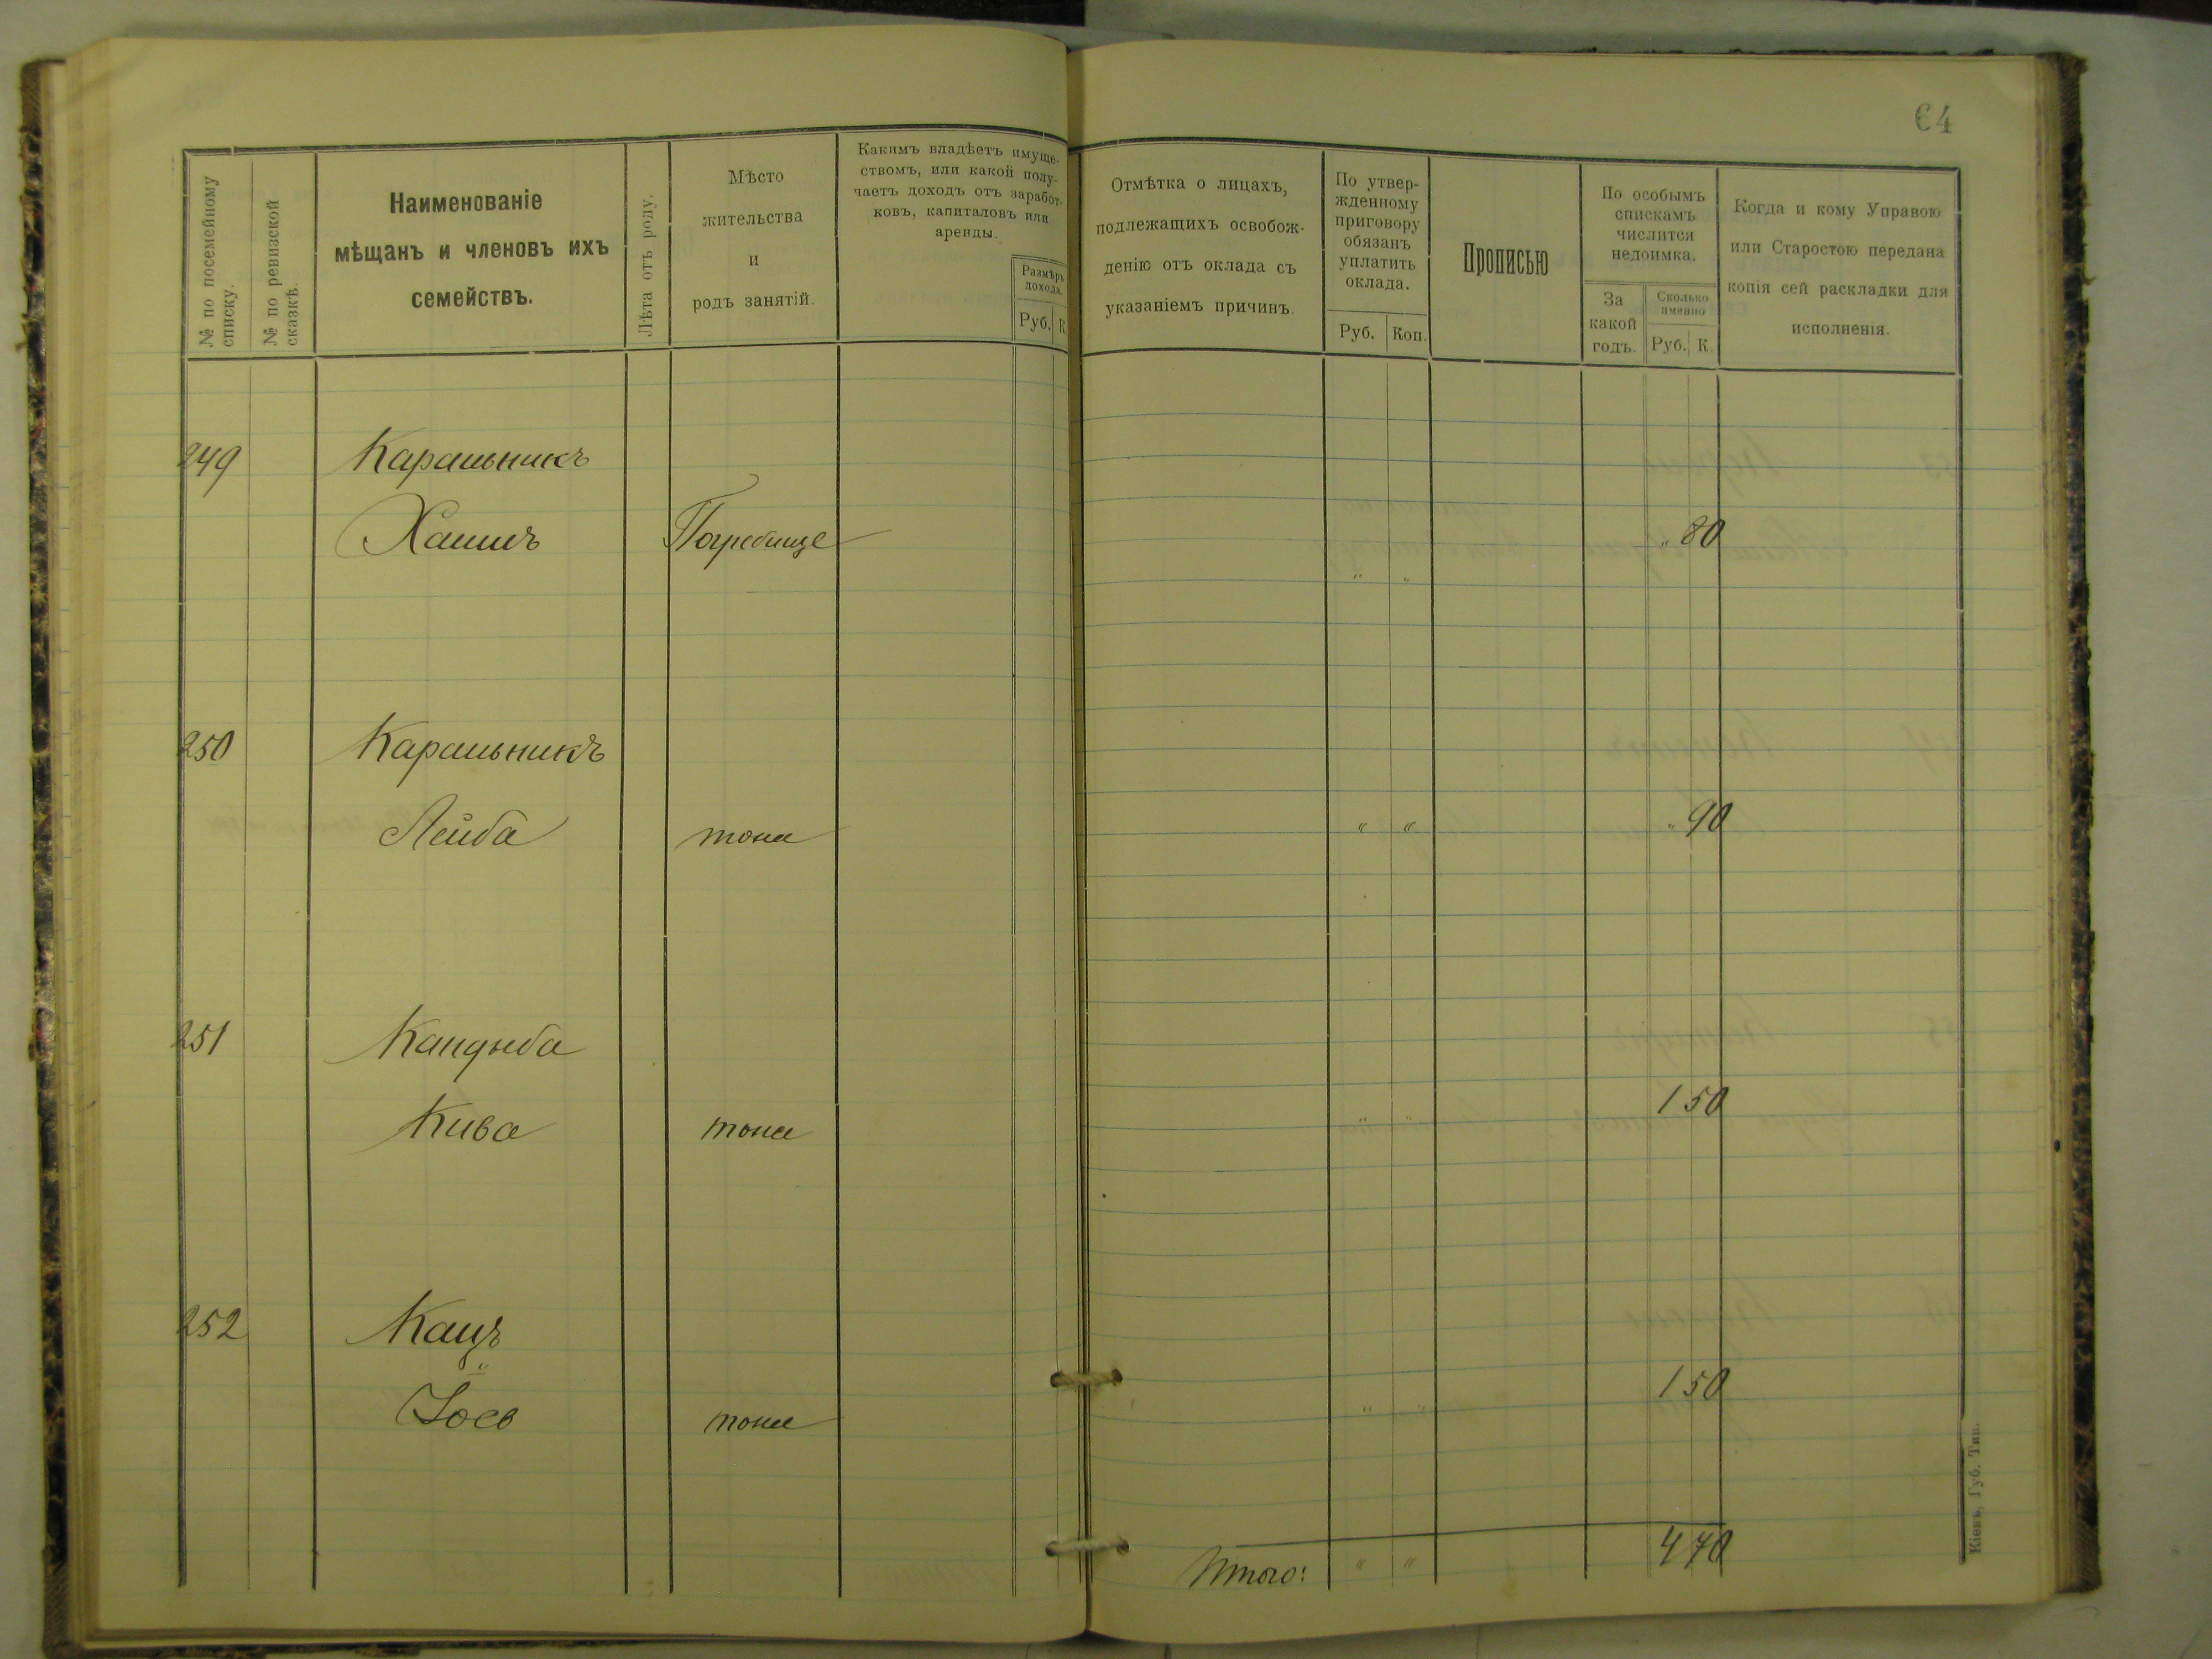 64
№ по посемейному
списку.
№ по ревизской
сказкѣ.
Наименованіе
мѣщанъ и членовъ ихъ
семействъ.
Лѣта отъ роду.
Мѣсто
жительства
и
родъ занятій.
Какимъ владѣетъ имуще-
ствомъ, или какой полу-
чаетъ доходъ отъ заработ-
ковъ, капиталовъ или
аренды.
Размѣръ
дохода.
Руб. К.
Отмѣтка о лицахъ,
подлежащихъ освобож-
денію отъ оклада съ
указаніемъ причинъ.
По утвер-
жденному
приговору
обязанъ
уплатить
оклада.
Руб. Коп.
Прописью
По особымъ
спискамъ
числится
недоимка.
За
какой
годъ.
Сколько
именно
Руб. К.
Когда и кому Управою
или Старостою передана
копія сей раскладки для
исполненія.
249 Каральникъ
Хаимъ Погребище " 80
" "
250 Каральникъ
Лейба тоже " " " 90
251 Кандыба
Кива тоже " " 1 50
252 Кацъ
Іосъ тоже " " 1 50
Итого: " " 4 70
Кіевъ, Губ. Тип.